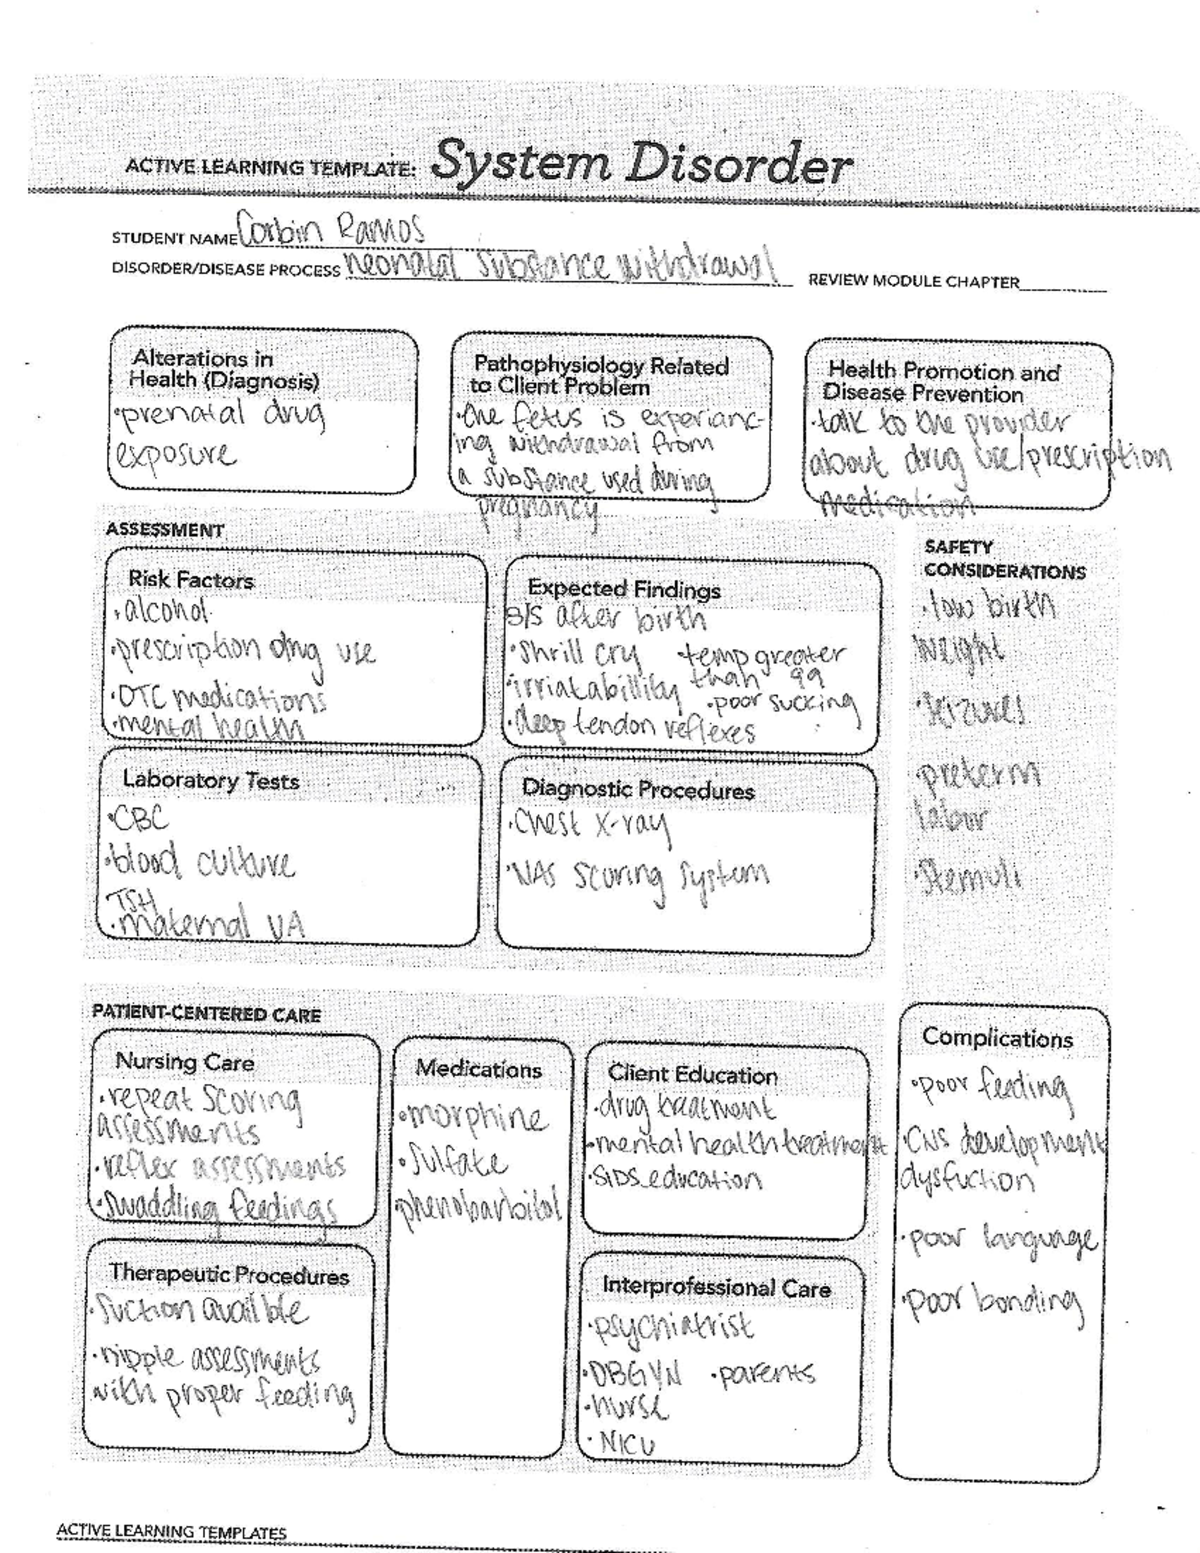 ACTIVE LEARNING TEMPLATE: System Disorder
STUDENT NAME Corbin Ramos
DISORDER/DISEASE PROCESS neonatal substance withdrawal
REVIEW MODULE CHAPTER
Alterations in
Health (Diagnosis)
•prenatal drug
exposure
Pathophysiology Related
to Client Problem
•the fetus is experianc-
ing withdrawal from
a substance used during
pregnancy
Health Promotion and
Disease Prevention
•talk to the provider
about drug use/prescription
medication
ASSESSMENT
Risk Factors
•alcohol
•prescription drug use
•OTC medications
•mental health
Expected Findings
S/S after birth
•Shrill cry •temp greater
than 99
•irriatabillity •poor sucking
•deep tendon reflexes
SAFETY
CONSIDERATIONS
•low birth
weight
•seizures
•preterm
labor
•Stemuli
Laboratory Tests
•CBC
•blood culture
TSH
•maternal UA
Diagnostic Procedures
•Chest X-ray
•NAS Scoring System
PATIENT-CENTERED CARE
Nursing Care
•repeat Scoring
assessments
•reflex assessments
•Swaddling feedings
Medications
•morphine
•Sulfate
phenobarbitol
Client Education
•drug treatment
•mental health treatment
•SIDS education
Complications
•poor feeding
•CNS development
dysfuction
•poor language
•poor bonding
Therapeutic Procedures
•Suction availble
•nipple assessments
with proper feeding
Interprofessional Care
•psychiatrist
•OBGYN •parents
•nurse
•NICU
ACTIVE LEARNING TEMPLATES